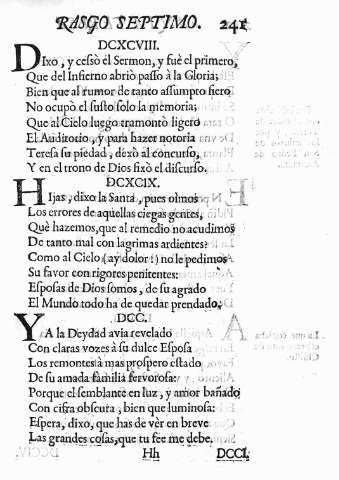 RASGO SEPTIMO. 241
DCXCVIII.
DIxo, y cessò el Sermon, y fuè el primero,
Que del Infierno abriò passo à la Gloria;
Bien que al rumor de tanto assumpto fiero
No ocupò el susto solo la memoria;
Que al Cielo luego tramontò ligero
El Auditorio, y para hazer notoria
Teresa su piedad, dexò al concurso,
Y en el trono de Dios fixò el discurso.
DCXCIX.
HIjas, dixo la Santa, pues oìmos
Los errores de aquellas ciegas gentes,
Què hazemos, que al remedio no acudimos
De tanto mal con lagrimas ardientes?
Como al Cielo (ay dolor!) no le pedimos
Su favor con rigores penitentes:
Esposas de Dios somos, de su agrado
El Mundo todo ha de quedar prendado.
DCC.
YA la Deydad avia revelado
Con claras vozes à su dulce Esposa
Los remontes à mas prospero estado
De su amada familia fervorosa:
Porque el semblante en luz, y amor bañado
Con cifra obscura, bien que luminosa:
Espera, dixo, que has de vèr en breve
Las grandes cosas, que tu fee me debe.
Hh DCCI.